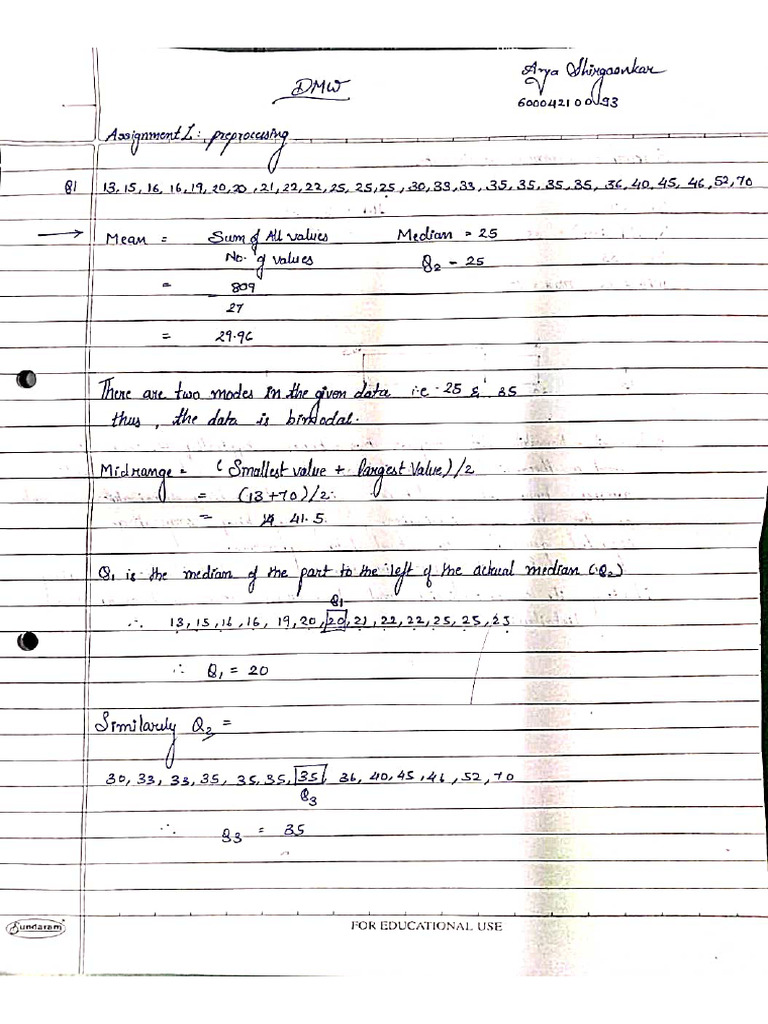 Arya Shirgaonkar
DMW
60004210093
Assignment 1: preprocessing
Q1 13, 15, 16, 16, 19, 20, 20, 21, 22, 22, 25, 25, 25, 30, 33, 33, 35, 35, 35, 35, 36, 40, 45, 46, 52, 70
→ Mean = Sum of All values Median = 25
No. of values Q2 - 25
= 809
27
= 29.96
There are two modes in the given data i.e 25 & 35
thus, the data is bimodal.
Midrange = (Smallest value + largest value)/2
= (13+70)/2.
= 41.5.
Q1 is the median of the part to the left of the actual median (Q2)
Q1
∴ 13, 15, 16, 16, 19, 20, 20, 21, 22, 22, 25, 25, 25
∴ Q1 = 20
Similarly Q2 =
30, 33, 33, 35, 35, 35, 35, 36, 40, 45, 46, 52, 70
Q3
∴ Q3 = 35
Sundaram
FOR EDUCATIONAL USE